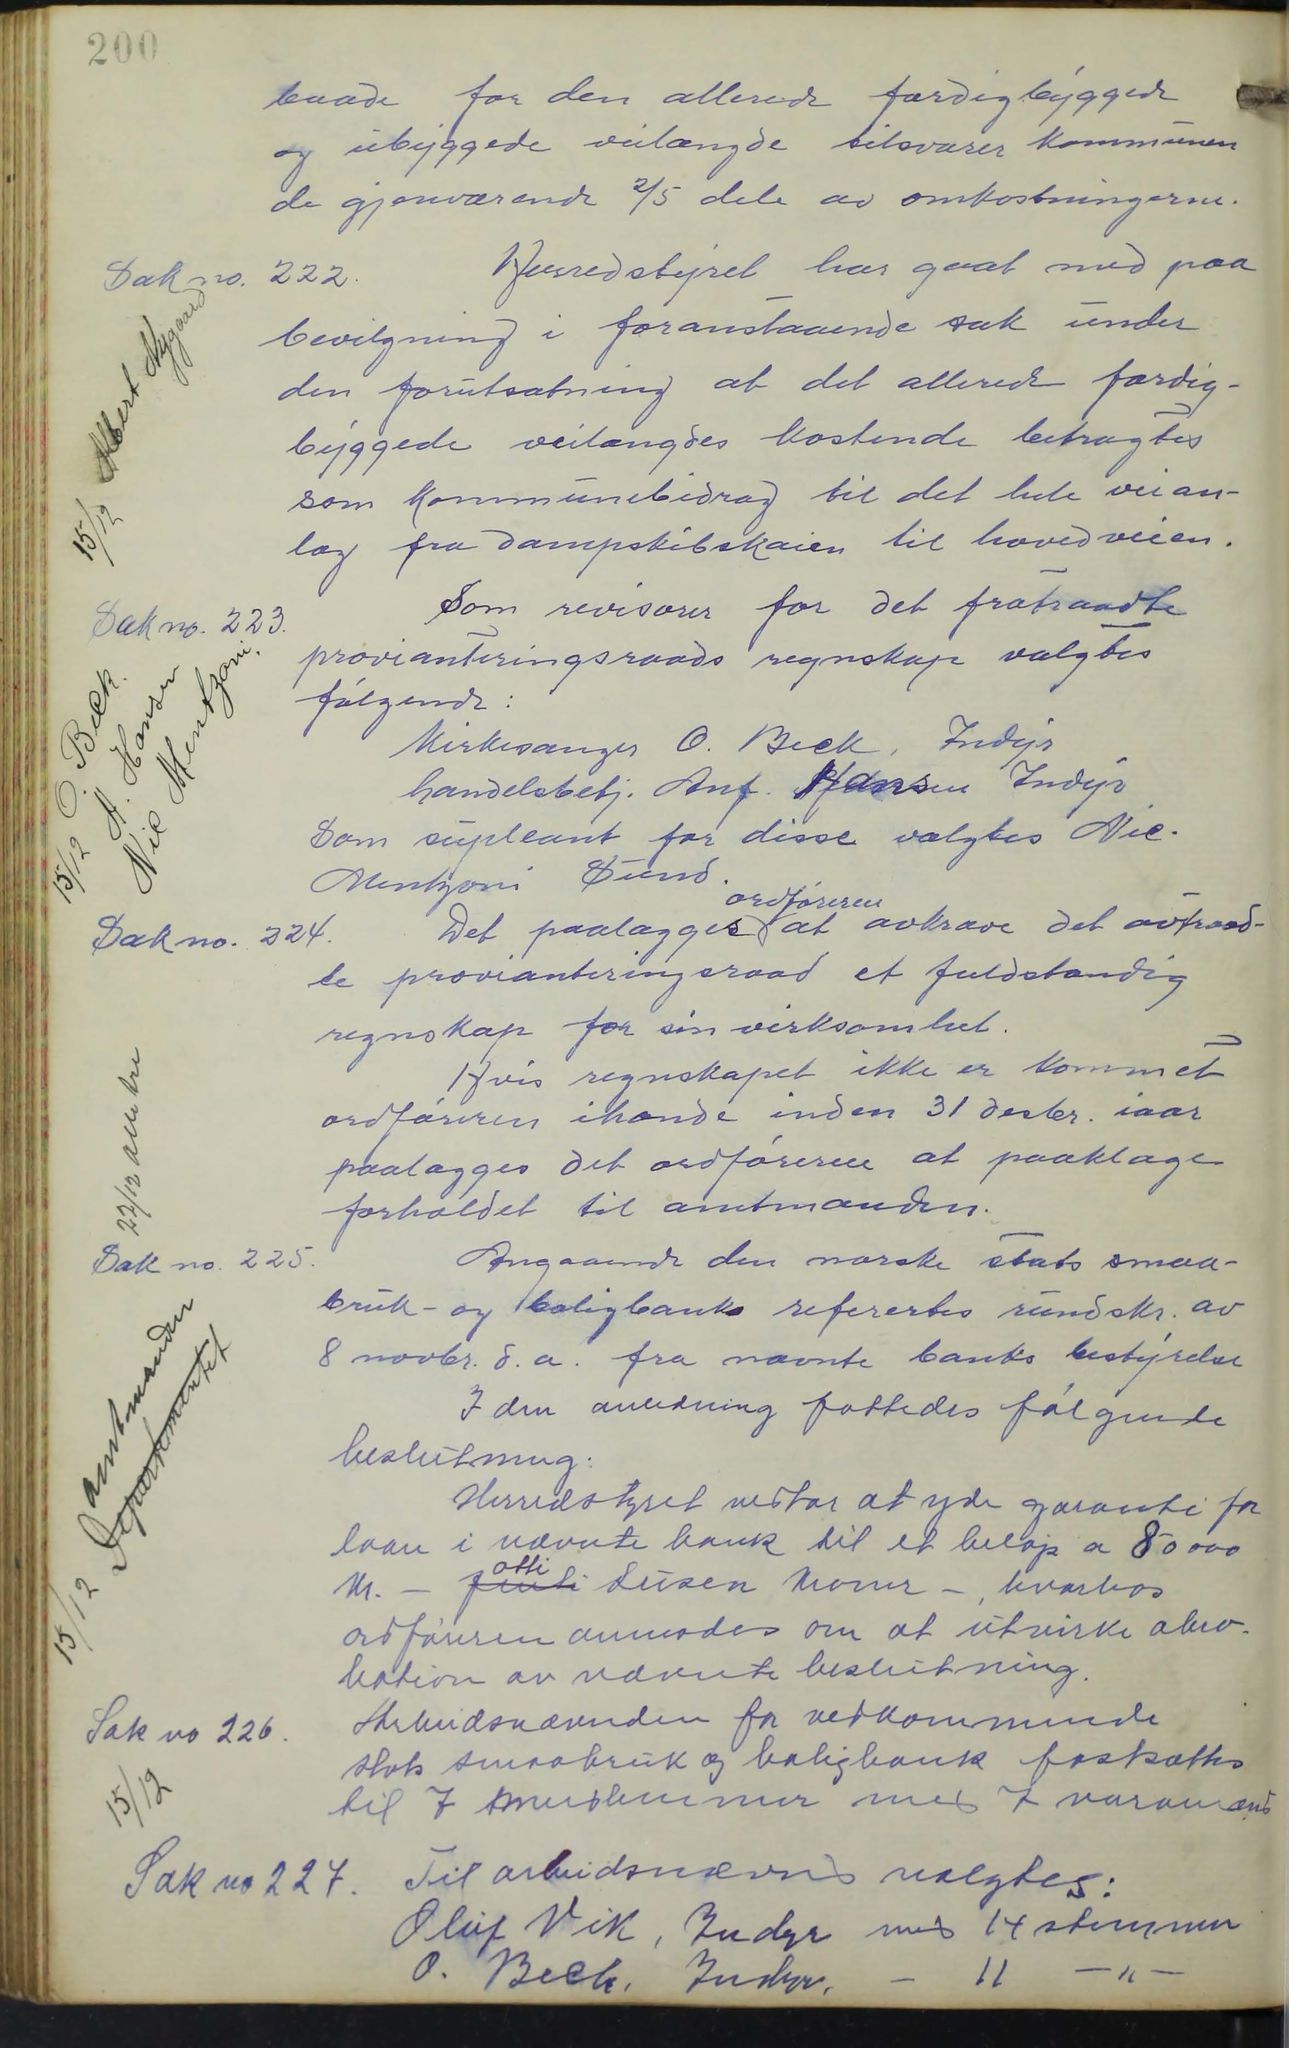 200
baade for den allerede færdigbyggede
og ubyggede veilængde tilsvarer kommunen
de gjenværende 2/5 dele av omkostningerne.
Sak no. 222. Herredstyret har gaat med paa
bevilgning i foranstaaende sak under
den forutsætning at det allerede færdig-
byggede veilængdes kostende betragtes
som kommunebidrag til det hele veian-
læg fra dampskibskaien til hovedveien.
15/12 Albert Nygaard
Sak no. 223. Som revisorer for det fratraadte
provianteringsraads regnskap valgtes
følgende:
Kirkesanger O. Beck, Indyr
handelsbetj. Anf. Hansen Indyr
Som supleant for disse valgtes Nic.
Mentzoni Sund.
15/12 O. Beck.
A. Hansen
Nic Mentzoni.
Sak no. 224. Det paalægges ordføreren at avkræve det avtraad-
te provianteringsraad et fuldstændig
regnskap for sin virksomhet.
Hvis regnskapet ikke er kommet
ordføreren ihænde inden 31 desbr. iaar
paalægges det ordføreren at paaklage
forholdet til amtmanden.
22/12
Sak no. 225. Angaaende den norske stats smaa-
bruk- og boligbank refereres rundskr. av
8 novbr. d. a. fra nævnte banks bestyrelse
I den anledning fattedes følgende
beslutning:
Herredstyret vedtar at yde garanti for
laan i nævnte bank til et beløp a 80000
kr. - otti tusen kroner -, hvorhos
ordføreren anmodes om at utvirke abro-
bation av nævnte beslutning.
15/12 amtmanden
Departementet
Sak no 226. Arbeidsnævnden for vedkommende
stats smaabruk og boligbank fastsættes
til 7 medlemmer med 7 varamænd
15/12
Sak no 227. Til arbeidsnævnd valgtes:
Oluf Vik, Indyr med 14 stemmer
O. Beck, Indyr. - 11 -"-